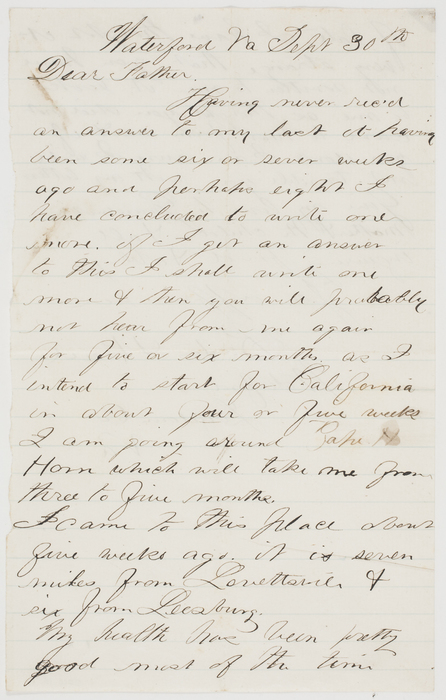 Waterford Va Sept 30th
Dear Father.
Having never rec'd
an answer to my last it having
been some six or seven weeks
ago and perhaps eight I
have concluded to write one
more. if I get an answer
to this I shall write one
more & then you will probably
not hear from me again
for five or six months. as I
intend to start for California
in about four or five weeks
I am going around Cape
Horn which will take me from
three to five months.
I came to this place about
five weeks ago. it is seven
miles from Lovettsvile &
six from Leesburg.
My health has been pretty
good most of the time